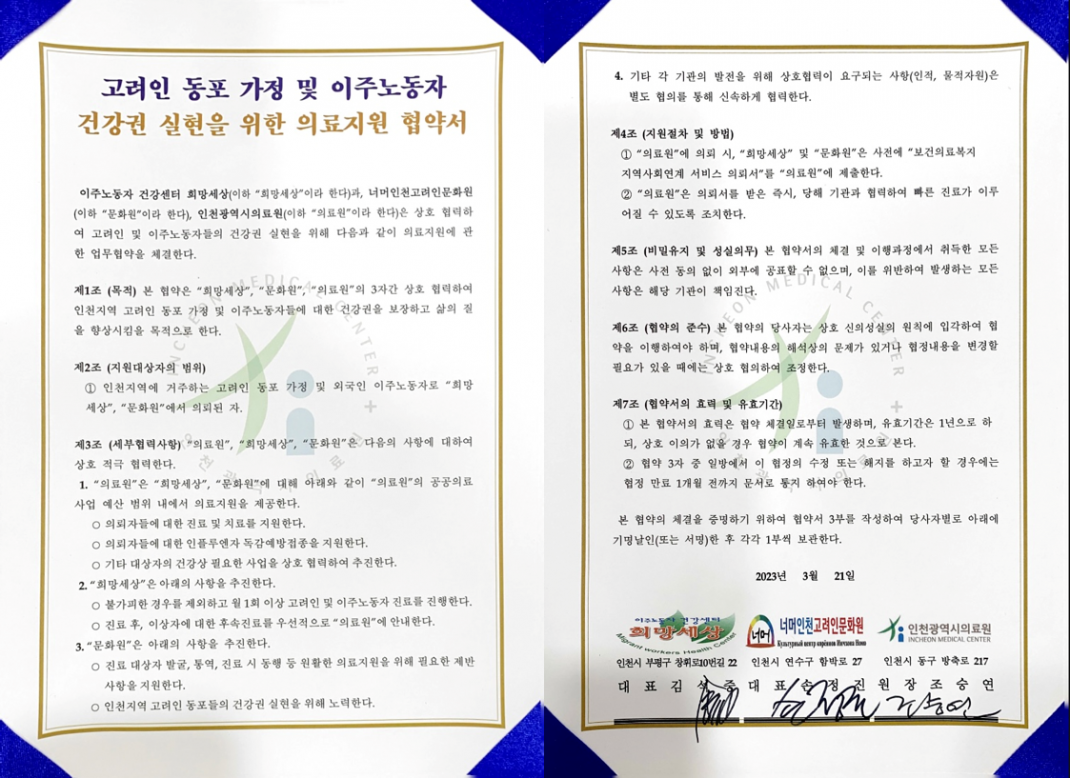 고려인 동포 가정 및 이주노동자
건강권 실현을 위한 의료지원 협약서
이주노동자 건강센터 희망세상(이하 “희망세상”이라 한다)과, 너머인천고려인문화원
(이하 “문화원”이라 한다), 인천광역시의료원(이하 “의료원”이라 한다)은 상호 협력하
여 고려인 및 이주노동자들의 건강권 실현을 위해 다음과 같이 의료지원에 관
한 업무협약을 체결한다.
제1조 (목적) 본 협약은 “희망세상”, “문화원”, “의료원”의 3자간 상호 협력하여
인천지역 고려인 동포 가정 및 이주노동자들에 대한 건강권을 보장하고 삶의 질
을 향상시킴을 목적으로 한다.
제2조 (지원대상자의 범위)
① 인천지역에 거주하는 고려인 동포 가정 및 외국인 이주노동자로 “희망
세상”, “문화원”에서 의뢰된 자.
제3조 (세부협력사항) “의료원”, “희망세상”, “문화원”은 다음의 사항에 대하여
상호 적극 협력한다.
1. “의료원”은 “희망세상”, “문화원”에 대해 아래와 같이 “의료원”의 공공의료
사업 예산 범위 내에서 의료지원을 제공한다.
○ 의뢰자들에 대한 진료 및 치료를 지원한다.
○ 의뢰자들에 대한 인플루엔자 독감예방접종을 지원한다.
○ 기타 대상자의 건강상 필요한 사업을 상호 협력하여 추진한다.
2. “희망세상”은 아래의 사항을 추진한다.
○ 불가피한 경우를 제외하고 월 1회 이상 고려인 및 이주노동자 진료를 진행한다.
○ 진료 후, 이상자에 대한 후속진료를 우선적으로 “의료원”에 안내한다.
3. “문화원”은 아래의 사항을 추진한다.
○ 진료 대상자 발굴, 통역, 진료 시 동행 등 원활한 의료지원을 위해 필요한 제반
사항을 지원한다.
○ 인천지역 고려인 동포들의 건강권 실현을 위해 노력한다.
4. 기타 각 기관의 발전을 위해 상호협력이 요구되는 사항(인적, 물적자원)은
별도 협의를 통해 신속하게 협력한다.
제4조 (지원절차 및 방법)
① “의료원”에 의뢰 시, “희망세상” 및 “문화원”은 사전에 “보건의료복지
지역사회연계 서비스 의뢰서”를 “의료원”에 제출한다.
② “의료원”은 의뢰서를 받은 즉시, 당해 기관과 협력하여 빠른 진료가 이루
어질 수 있도록 조치한다.
제5조 (비밀유지 및 성실의무) 본 협약서의 체결 및 이행과정에서 취득한 모든
사항은 사전 동의 없이 외부에 공표할 수 없으며, 이를 위반하여 발생하는 모든
사항은 해당 기관이 책임진다.
제6조 (협약의 준수) 본 협약의 당사자는 상호 신의성실의 원칙에 입각하여 협
약을 이행하여야 하며, 협약내용의 해석상의 문제가 있거나 협정내용을 변경할
필요가 있을 때에는 상호 협의하여 조정한다.
제7조 (협약서의 효력 및 유효기간)
① 본 협약서의 효력은 협약 체결일로부터 발생하며, 유효기간은 1년으로 하
되, 상호 이의가 없을 경우 협약이 계속 유효한 것으로 본다.
② 협약 3자 중 일방에서 이 협정의 수정 또는 해지를 하고자 할 경우에는
협정 만료 1개월 전까지 문서로 통지 하여야 한다.
본 협약의 체결을 증명하기 위하여 협약서 3부를 작성하여 당사자별로 아래에
기명날인(또는 서명)한 후 각각 1부씩 보관한다.
2023년 3월 21일
이주노동자 건강센터
희망세상
Migrant workers Health Center
너머 너머인천고려인문화원
Культурный центр корёинов Инчхона Нома
인천광역시의료원
INCHEON MEDICAL CENTER
인천시 부평구 창휘로10번길 22 인천시 연수구 함박로 27 인천시 동구 방축로 217
대 표 김 석 중 대 표 손 정 진 원 장 조 승 연
INCHEON MEDICAL CENTER
인천광역시의료원
INCHEON MEDICAL CENTER
인천광역시의료원